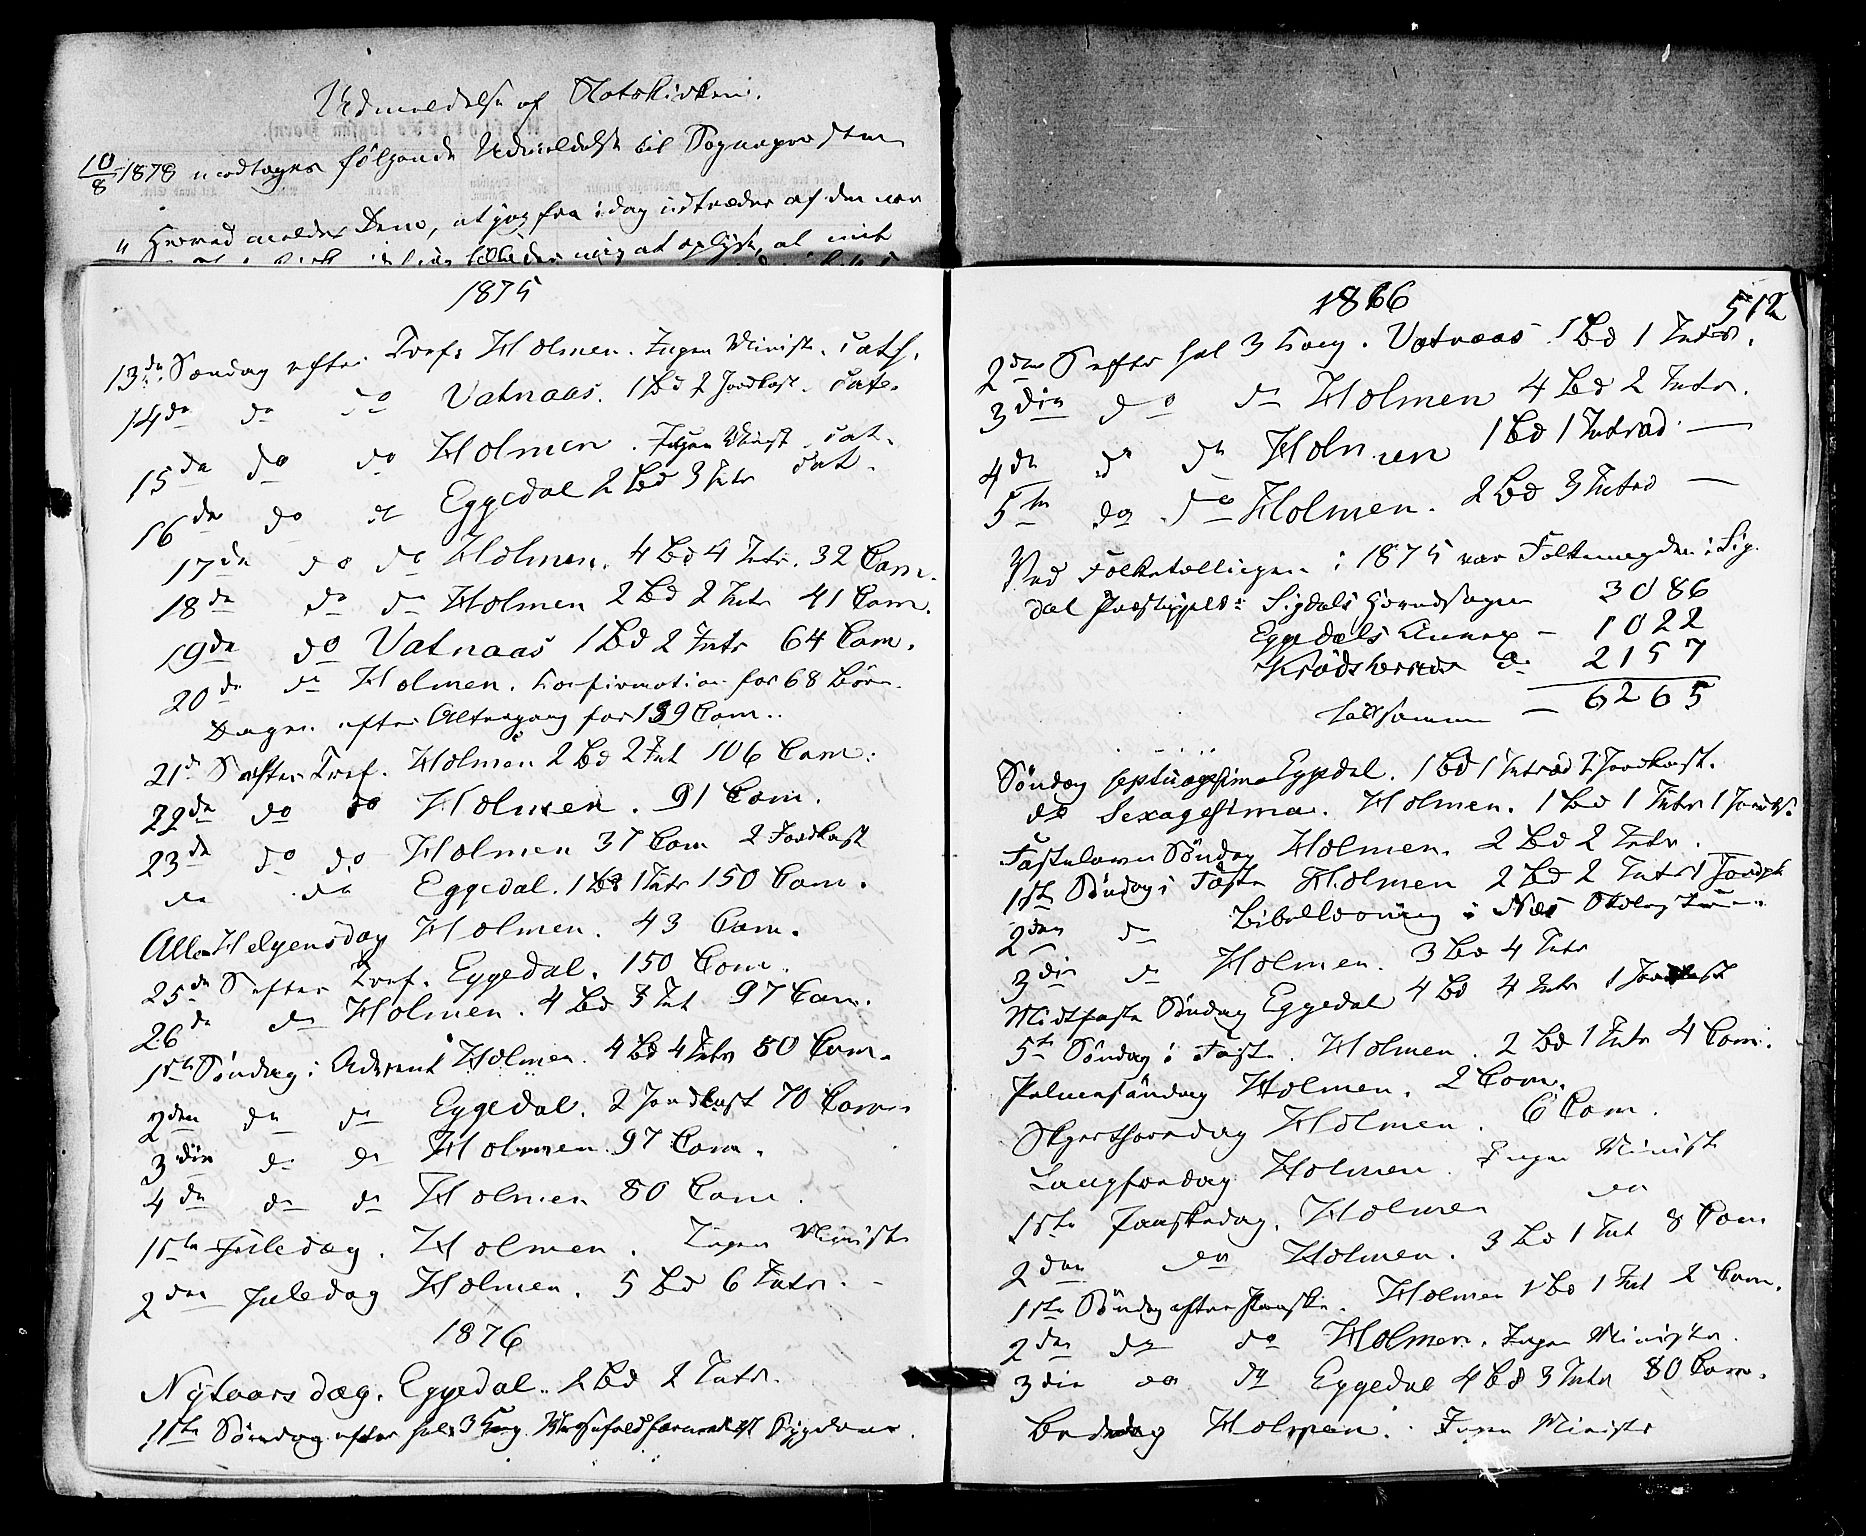 Udmeldelse af Statskirken.
10/8 1878 modtoges følgende Udmeldelse til Sognepresten
" Herved meldes Dem, at jeg fra idag udtræder af den nor
tillader mig at oplyse, at mit
1875
13de Søndag efter Tref. Holmen. Ingen Minist. Cath.
14de do do Vatnaas. 1 Bd 2 Jordkast. Cat.
15de do do Holmen. Ingen Minist. Cat.
16de do do Eggedal 2 Bd 3 Intr Cat.
17de do do Holmen. 4 Bd 4 Intr. 32 Com.
18de do do Holmen 2 Bd 2 Intr 41 Com.
19de do Vatnaas 1 Bd 2 Intr 64 Com.
20de do Holmen. Confirmation for 68 Børn.
Dagen efter Altergang for 139 Com.
21de S efter Tref. Holmen 2 Bd 2 Int 106 Com.
22de do do Holmen. 91 Com.
23de do do Holmen 37 Com 2 Jordkast
do do Eggedal. 1 Bd 1 Intr 150 Com.
Alle Helgensdag Holmen. 43 Com.
25de S efter Tref. Eggedal. 150 Com.
26de do Holmen. 4 Bd 3 Int 97 Com.
1ste Søndag i Advent Holmen. 4 Bd 4 Intr 80 Com.
2den do do Eggedal. 2 Jordkast 70 Com.
3die do do Holmen. 97 Com.
4de do do Holmen 80 Com.
1ste Juledag. Holmen. Ingen Ministr
2den Juledag Holmen. 5 Bd 6 Intr. -
1876
Nytaarsdag. Eggedal. 2 Bd 2 Intr.
1ste Søndag efter hel. 3 Kong. Sygdom.
1866
512
2den S efter hel 3 Kong. Vatnaas 1 Bd 1 Introd.
3die do do Holmen 4 Bd 2 Intr.
4de do do Holmen 1 Bd 1 Introd. —
5te do do Holmen. 2 Bd 3 Introd —
Ved Folketællingen i 1875 var Folkemengden i Sig
dal Præstegjeld: Sigdals Hovedsogn 3086
Eggedals Annex - 1022
Krødsherreds do 2157
tilsammen — 6265
Søndag septuagesima Eggedal. 1 Bd 1 Introd 2 Jordkast.
do Sexagesima. Holmen. 1 Bd 1 Intr 1 Jordk.
Fastelavns Søndag Holmen. 2 Bd 2 Intr.
1ste Søndag i Faste Holmen 2 Bd 2 Intr 1 Jordk
2den do Bibellæsning i Næs
3die do Holmen. 3 Bd 4 Intr
Midtfaste Søndag Eggedal 4 Bd 4 Intr 1 Jordkast
5te Søndag i Faste. Holmen. 2 Bd 1 Intr 4 Com.
Palmesøndag Holmen. 2 Com.
Skjertorsdag Holmen. 6 Com.
Langfredag Holmen. Ingen Minist
1ste Paaskedag. Holmen do
2den do Holmen. 3 Bd 1 Int 8 Com
1ste Søndag efter Paaske. Holmen 1 Bd 1 Int 2 Com.
2den do do Holmen. Ingen Ministr.
3die do do Eggedal 4 Bd 3 Intr 80 Com.
Bededag Holmen. Ingen Ministr